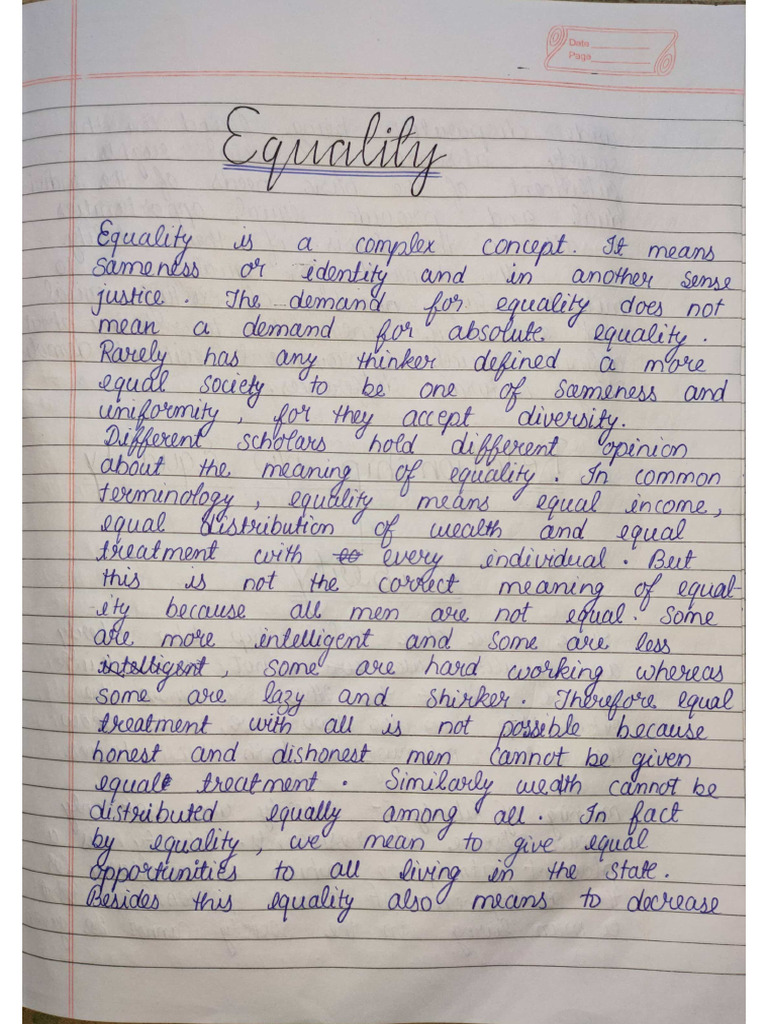 Date
Page
Equality
Equality is a complex concept. It means
sameness or identity and in another sense
justice. The demand for equality does not
mean a demand for absolute equality.
Rarely has any thinker defined a more
equal society to be one of sameness and
uniformity, for they accept diversity.
Different scholars hold different opinion
about the meaning of equality. In common
terminology, equality means equal income,
equal distribution of wealth and equal
treatment with every individual. But
this is not the correct meaning of equal-
ity because all men are not equal. Some
are more intelligent and some are less
intelligent, some are hard working whereas
some are lazy and shirker. Therefore equal
treatment with all is not possible because
honest and dishonest men cannot be given
equal treatment. Similarly wealth cannot be
distributed equally among all. In fact
by equality, we mean to give equal
opportunities to all living in the state.
Besides this equality also means to decrease